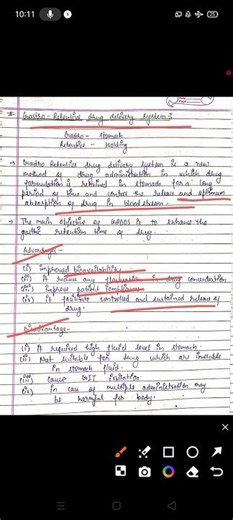 10:11
Gastro - Retentive drug delivery system :-
Gastro - Stomach
Retentive - Holding
→ Gastro Retentive drug delivery system is a new
method of drug administration in which drug
formulation is retained in stomach for a long
period of time and control the release and optimum
absorption of drug in blood stream.
→ The main objective of GRDDS is to enhance the
gastric retention time of drug.
Advantage -
(i) improved bioavailability
(ii) it reduce any fluctuation in drug concentration
(iii) improve patient compliance
(iv) it facilitate controlled and sustained release of
drug.
Disadvantage -
(i) It required high fluid level in stomach.
(ii) Not suitable for drug which are insoluble
in stomach fluid.
(iii) cause GIT irritation
(iv) in case of multiple administration may
be harmful for body.